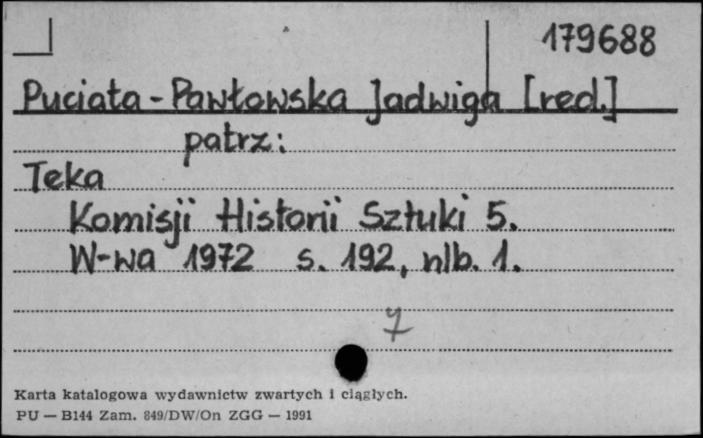 179688
Puciata-Pawłowska Jadwiga [red.]
patrz:
Teka
Komisji Historii Sztuki 5.
W-wa 1972 s. 192, nlb. 1.
7
Karta katalogowa wydawnictw zwartych i ciągłych.
PU — B144 Zam. 849/DW/On ZGG — 1991